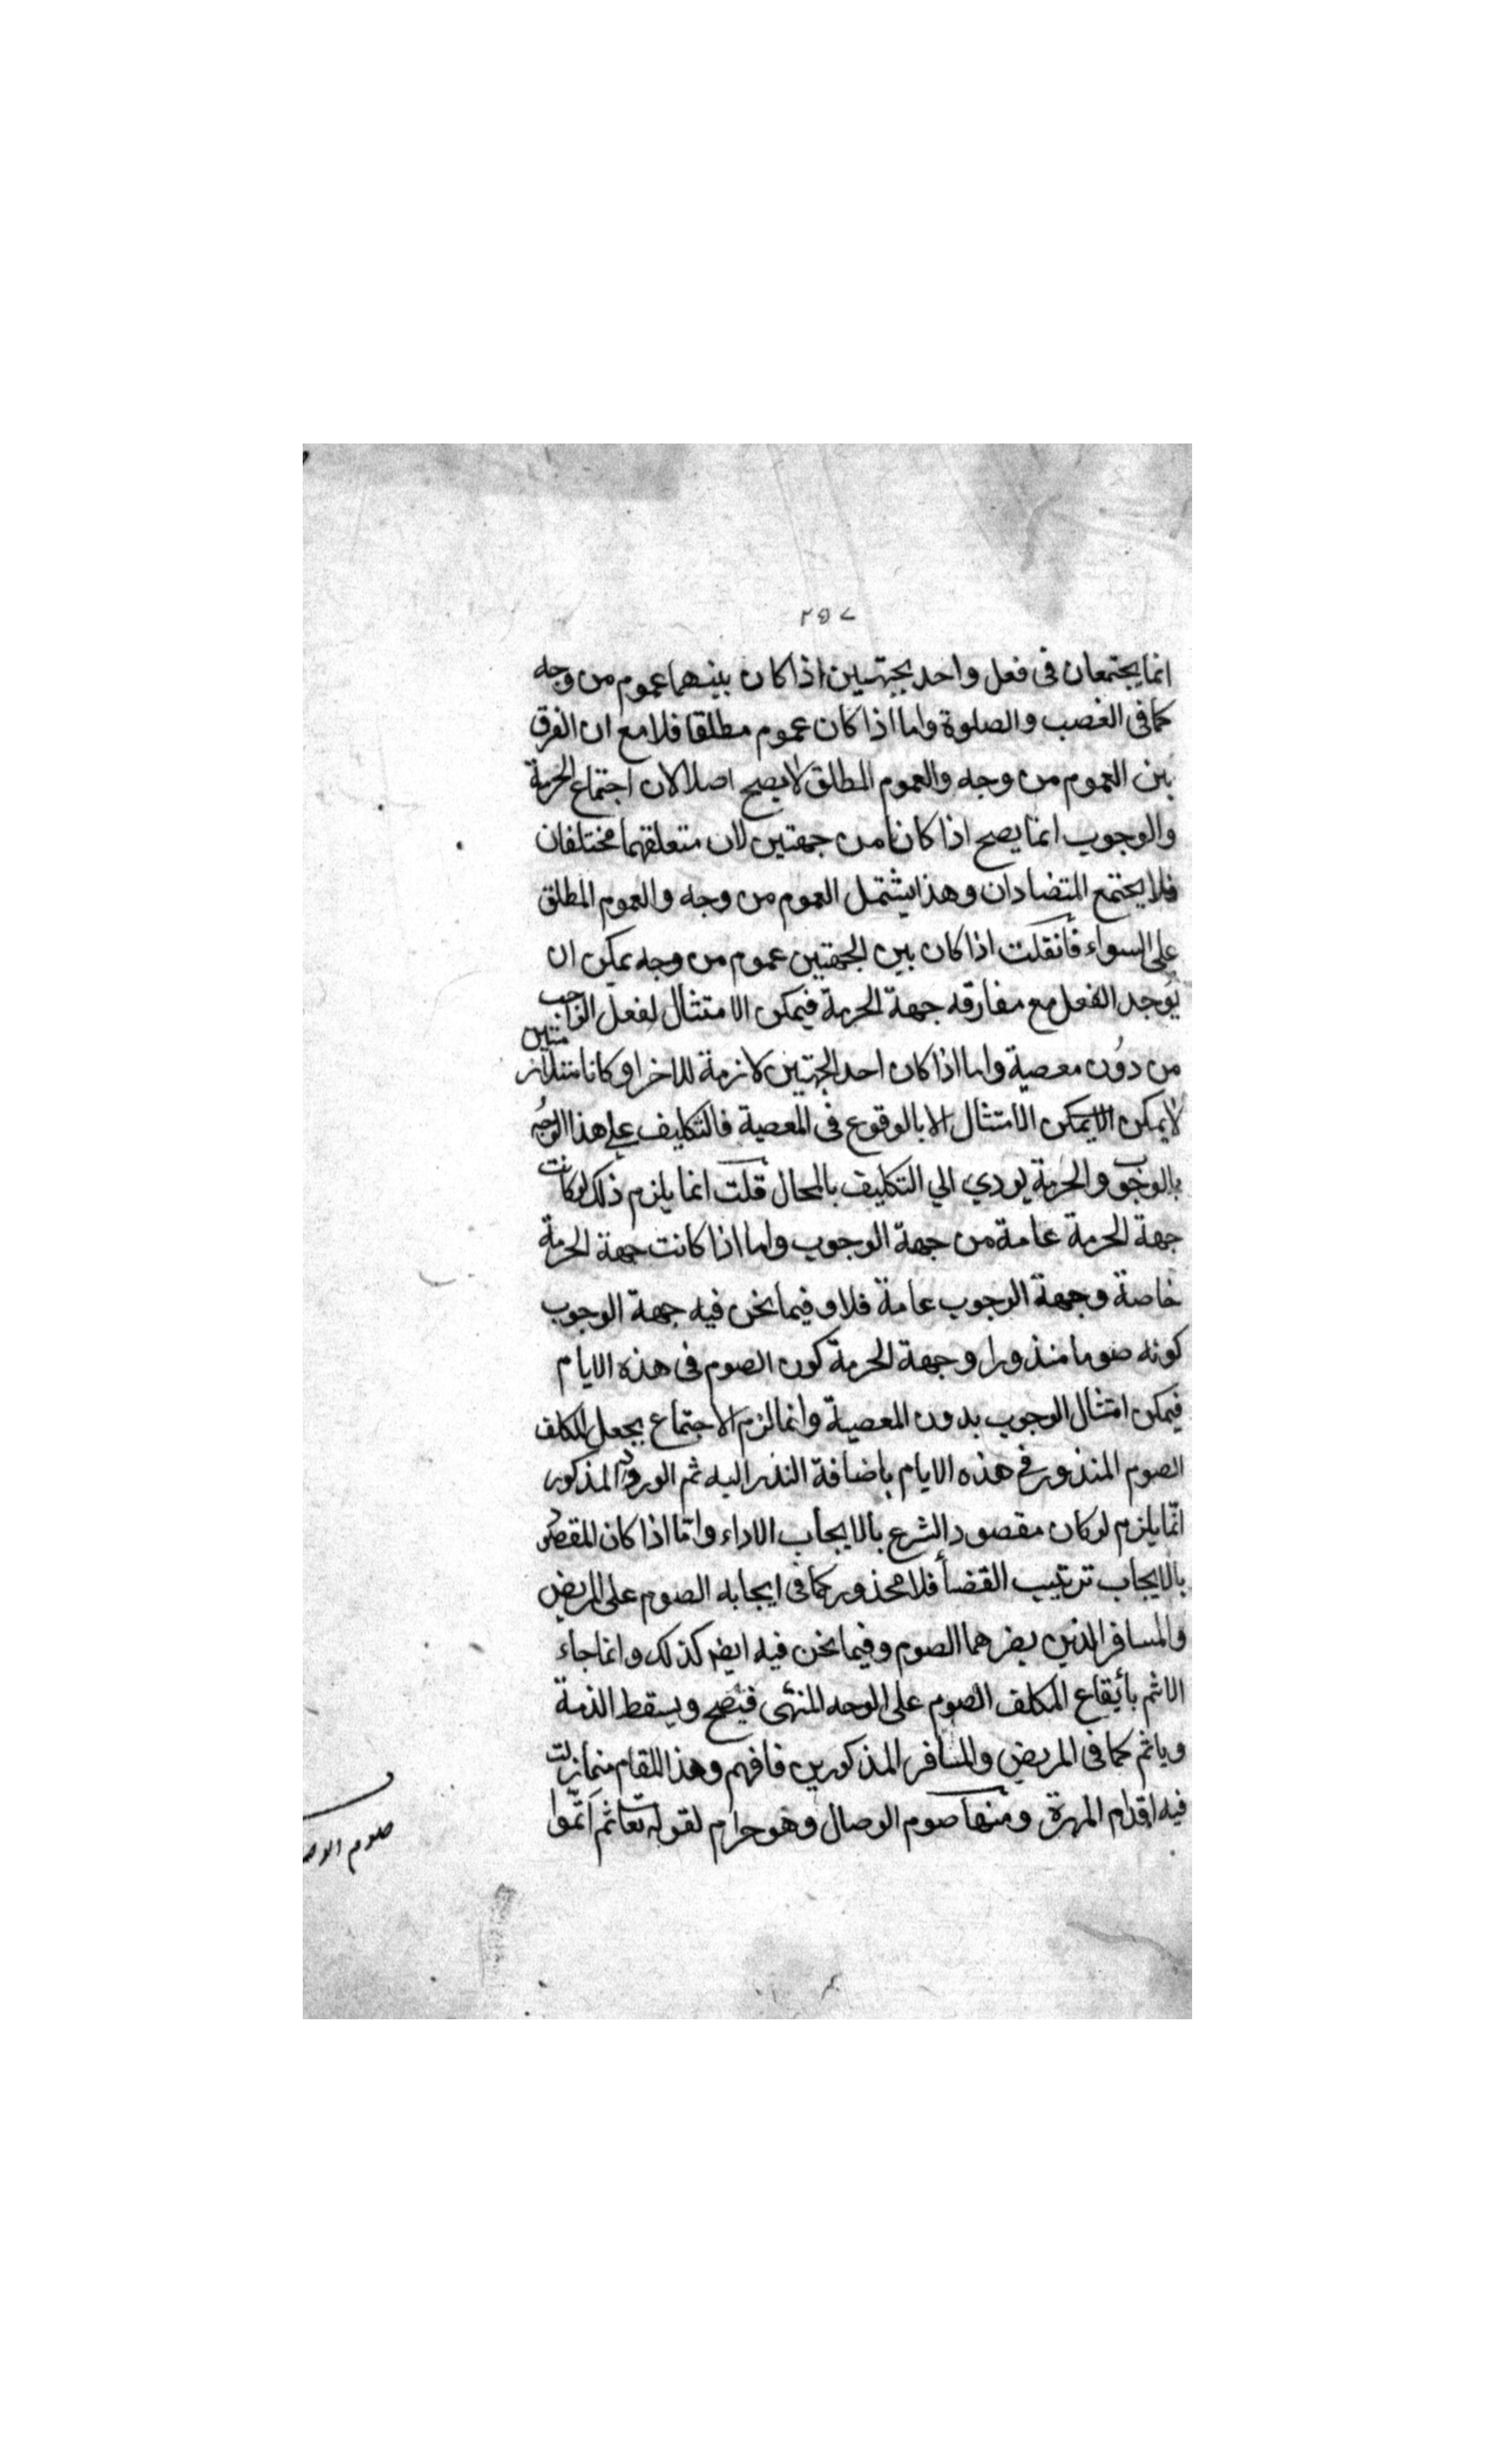 ٢٥٧
انما يجتمعان فى فعل واحد بجهتين اذا كان بينهما عموم من وجه
كما فى الغصب والصلوة واما اذا كان عموم مطلقا فلا مع ان الفرق
بين العموم من وجه والعموم المطلق لا يصح اصلا لان اجتماع الحرمة
والوجوب انما يصح اذا كانا من جهتين لان متعلقهما مختلفان
فلا يجتمع المتضادان وهذا يشتمل العموم من وجه والعموم المطلق
على السواء فانقلت اذا كان بين الجهتين عموم من وجه يمكن ان
يوجد الفعل مع مفارقه جهة الحرمة فيمكن الامتثال لفعل الواجب
من دون معصية واما اذا كان احد الجهتين لازمة للاخر او كانا متلازمتين
لا يمكن الا يمكن الامتثال الا بالوقوع فى المعصية فالتكليف على هذا الوجه
بالوجوب والحرمة يودي الي التكليف بالمحال قلت انما يلزم ذلك لو كانت
جهة الحرمة عامة من جهة الوجوب واما اذا كانت جهة الحرمة
خاصة وجهة الوجوب عامة فلا وفيما نحن فيه جهة الوجوب
كونه صوما منذورا وجهة الحرمة كون الصوم فى هذه الايام
فيمكن امتثال الوجوب بدون المعصية وانما لزم الاجتماع بجعل المكلف
الصوم المنذور فى هذه الايام باضافة النذر اليه ثم الورود المذكور
انّما يلزم لو كان مقصود الشرع بالايجاب الاداء وامّا اذا كان المقصود
بالايجاب ترتيب القضأ فلا محذور كما فى ايجابه الصوم على المريض
والمسافر الذين يضرهما الصوم وفيما نحن فيه ايضا كذلك وانما جاء
الاثم بأيقاع المكلف الصوم على الوجه المنهى فيصح ويسقط الذمة
وياثم كما فى المريض والمسافر المذكورين فافهم وهذا المقام مما زلت
فيه اقدام المهرة ومنها صوم الوصال وهو حرام لقوله تعا ثم اتمّوا
صوم